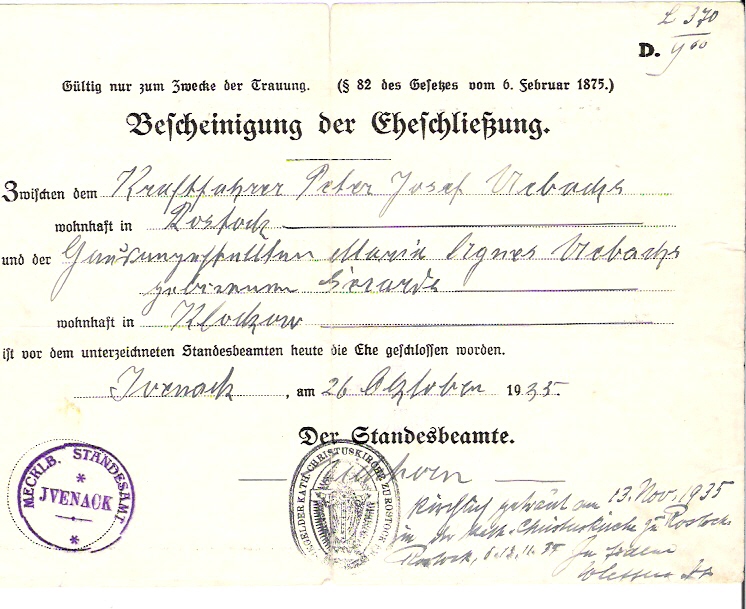 L 370
D.
Gültig nur zum Zwecke der Trauung. (§ 82 des Gesetzes vom 6. Februar 1875.)
Bescheinigung der Eheschließung.
Zwischen dem Kraftfahrer Peter Josef Uebachs
wohnhaft in Rostock
und der Hausangestellten Maria Agnes Uebachs
geborenen
wohnhaft in Klockow
ist vor dem unterzeichneten Standesbeamten heute die Ehe geschlossen worden.
Ivenack, am 26 Oktober 1935.
Der Standesbeamte.
MECKLB. STANDESAMT
JVENACK
KATH. CHRISTUSKIRCHE ZU ROSTOCK
Kirchlich getraut am 13. Nov. 1935
in der kath. Christuskirche zu Rostock
Rostock,